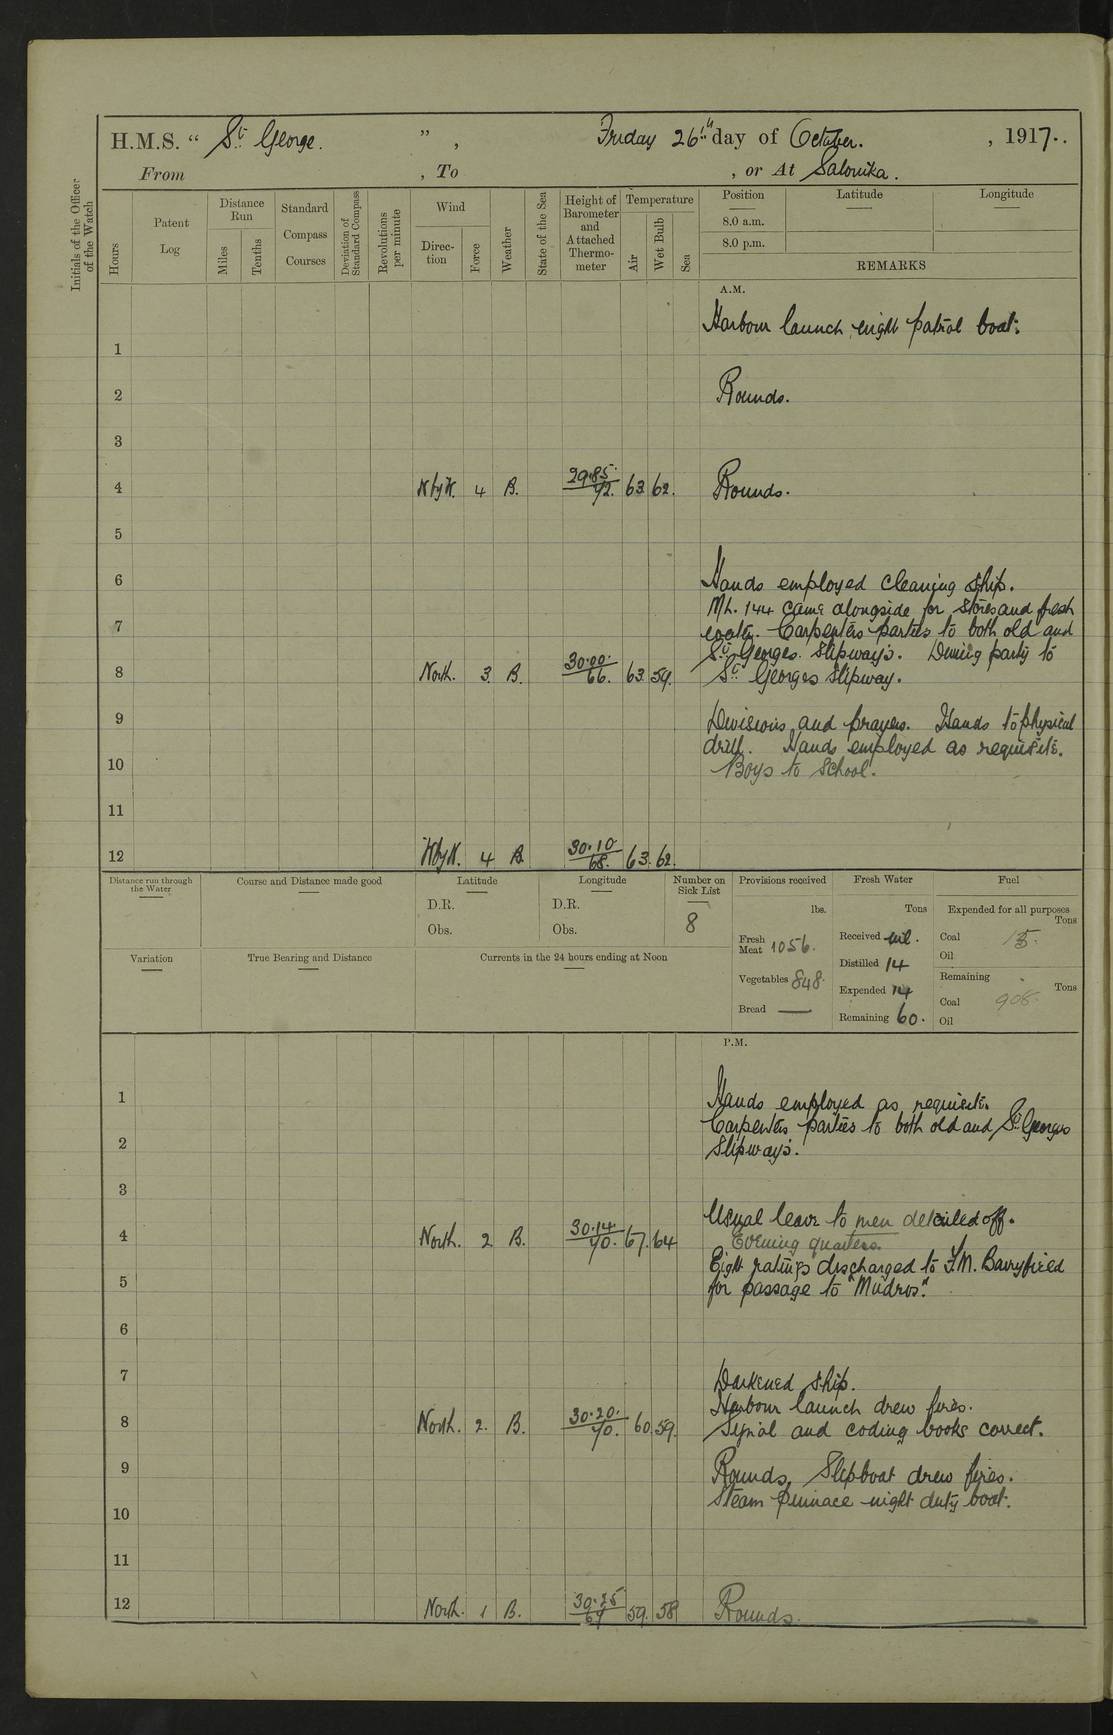 H.M.S. “ St. George. ” , Friday 26th day of October. , 1917.
From , To , or At Salonika.
Initials of the Officer of the Watch
Hours
Patent Log
Distance Run
Miles
Tenths
Standard Compass Courses
Deviation of Standard Compass
Revolutions per minute
Wind
Direction
Force
Weather
State of the Sea
Height of Barometer and Attached Thermometer
Temperature
Air
Wet Bulb
Sea
Position Latitude Longitude
8.0 a.m.
8.0 p.m.
REMARKS
A.M.
Harbour launch night patrol boat.
1
2 Rounds.
3
4 4 B. 29.85 63 62. Rounds.
5
6 Hands employed cleaning ship.
ML. 144 came alongside for stores and fresh
7 water. Carpenters parties to both old and
St. Georges Slipways. party to
8 North. 3. B. 30.00. 66. 63. 59. St. Georges Slipway.
9 Divisions and prayers. Hands to physical
drill. Hands employed as requisite.
10 Boys to School.
11
12 4 B 30.10 68. 63. 62.
Distance run through the Water
Course and Distance made good
Latitude
D.R.
Obs.
Longitude
D.R.
Obs.
Number on Sick List
8
Provisions received
lbs.
Fresh Meat 1056.
Vegetables 848.
Bread —
Fresh Water
Tons
Received nil.
Distilled 14
Expended 14
Remaining 60.
Fuel
Expended for all purposes
Tons
Coal 15.
Oil
Remaining
Tons
Coal 908.
Oil
Variation
True Bearing and Distance
Currents in the 24 hours ending at Noon
P.M.
1 Hands employed as requisite.
Carpenters parties to both old and St. Georges
2 Slipways.
3
Usual leave to men detailed off.
4 North. 2 B. 30.14 70. 67. 64 Evening quarters.
Eight ratings discharged to F.M. Barryfield
5 for passage to "Mudros".
6
7 Darkened ship.
Harbour launch drew fires.
8 North. 2. B. 30.20. 70. 60. 59. Signal and coding books correct.
9 Rounds, Slipboat drew fires.
Steam pinnace night duty boat.
10
11
12 North. 1 B. 30.25 69 59. 58 Rounds.